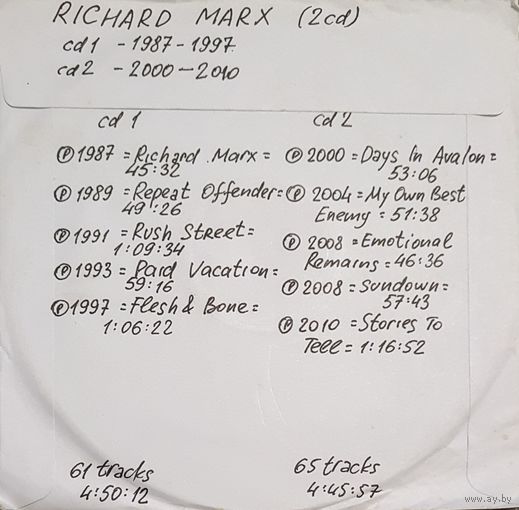 RICHARD MARX (2cd)
cd 1 - 1987 - 1997
cd 2 - 2000 - 2010
cd 1
Ⓟ 1987 = Richard Marx =
45:32
Ⓟ 1989 = Repeat Offender =
49':26
Ⓟ 1991 = Rush Street =
1:09:34
Ⓟ 1993 = Paid Vacation =
59:16
Ⓟ 1997 = Flesh & Bone =
1:06:22
61 tracks
4:50:12
cd 2
Ⓟ 2000 = Days In Avalon =
53:06
Ⓟ 2004 = My Own Best
Enemy = 51:38
Ⓟ 2008 = Emotional
Remains = 46:36
Ⓟ 2008 = Sundown =
57:43
Ⓟ 2010 = Stories To
Tell = 1:16:52
65 tracks
4:45:57
www.ay.by